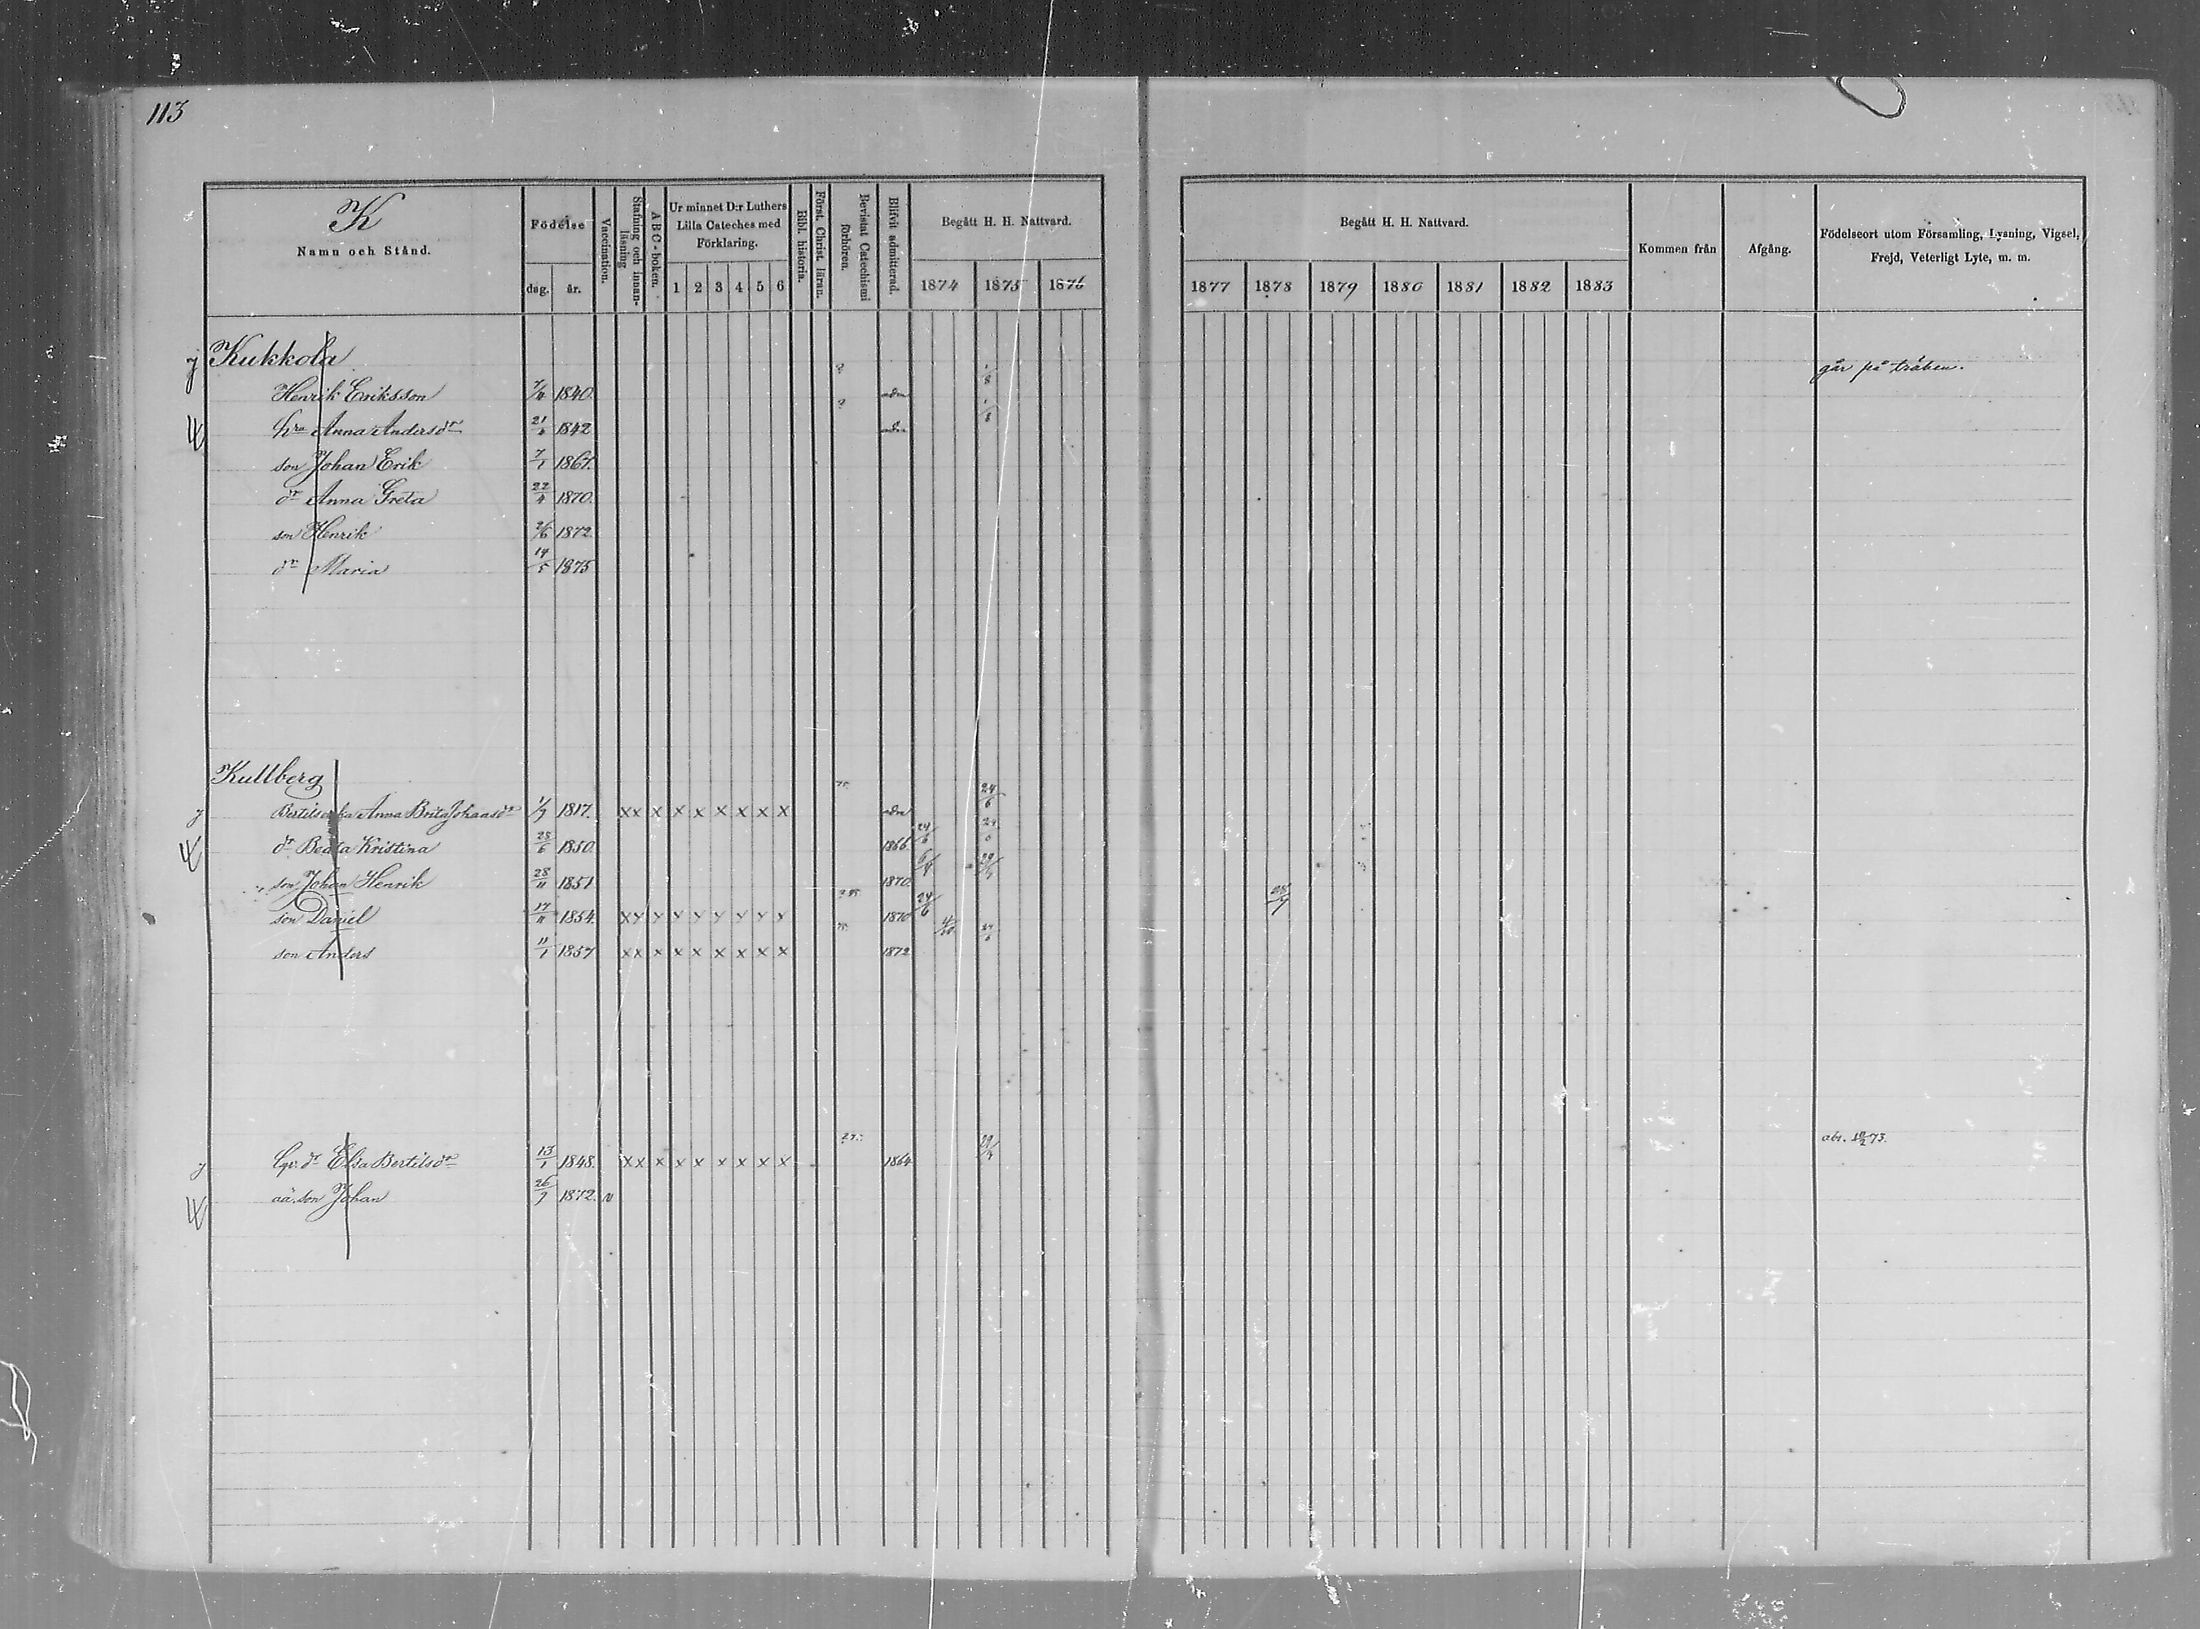 113
K
Namn och Stånd.
Födelse
dag. år.
Vaccination.
Stafning och innanläsning
ABC-boken.
Ur minnet D:r Luthers Lilla Cateches med Förklaring.
1 2 3 4 5 6
Bibl. historia.
Först. Christ. läran.
Bevistat Catechismi förhören.
Blifvit admitterad.
Begått H. H. Nattvard.
1874 1875 1876
Begått H. H. Nattvard.
1877 1878 1879 1880 1881 1882 1883
Kommen från
Afgång.
Födelseort utom Församling, Lysning, Vigsel, Frejd, Veterligt Lyte, m. m.
Kukkola
går på träben.
Henrik Eriksson 1840. adm
hru Anna Andersdr 21/4 1842 adm
son Johan Erik 7/1 1867.
dr Anna Greta 22/4 1870.
son Henrik 2/6 1872.
dr Maria 14/5 1875
Kullberg
Anna Brita Johansdr 1/7 1817. x x x x x x x x x adm 24/6
dr Beata Kristina 28/6 1850. 1866. 24/6
son Johan Henrik 28/11 1851 1870.
son Daniel 17/11 1854. x x x x x x x x x 1870 24/6
son Anders 11/1 1857 x x x x x x x x x 1872
dr Elsa Bertilsdr 13/1 1848. x x x x x x x x x 1864
aä. son Johan 26/7 1872. v